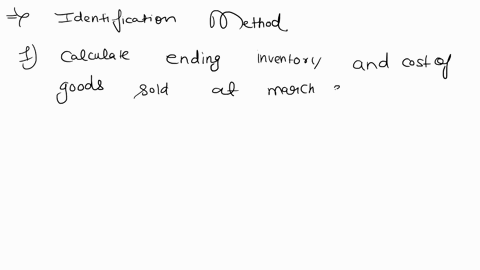 ⇒ Identification Method
1) Calculate ending inventory and cost of
goods sold at march